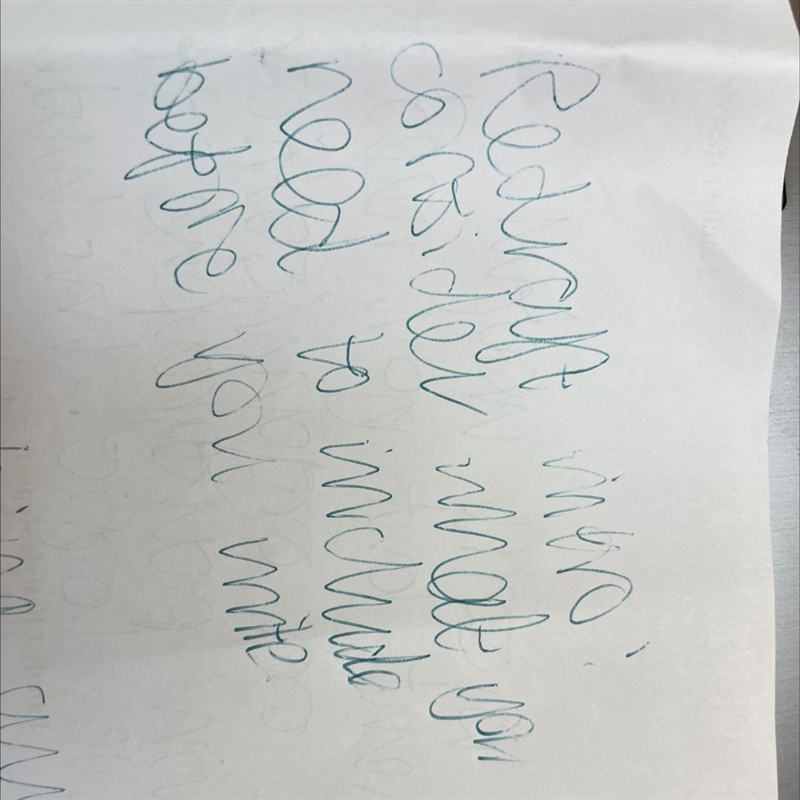 Redraft intro.
Consider what you
need to include
before you write